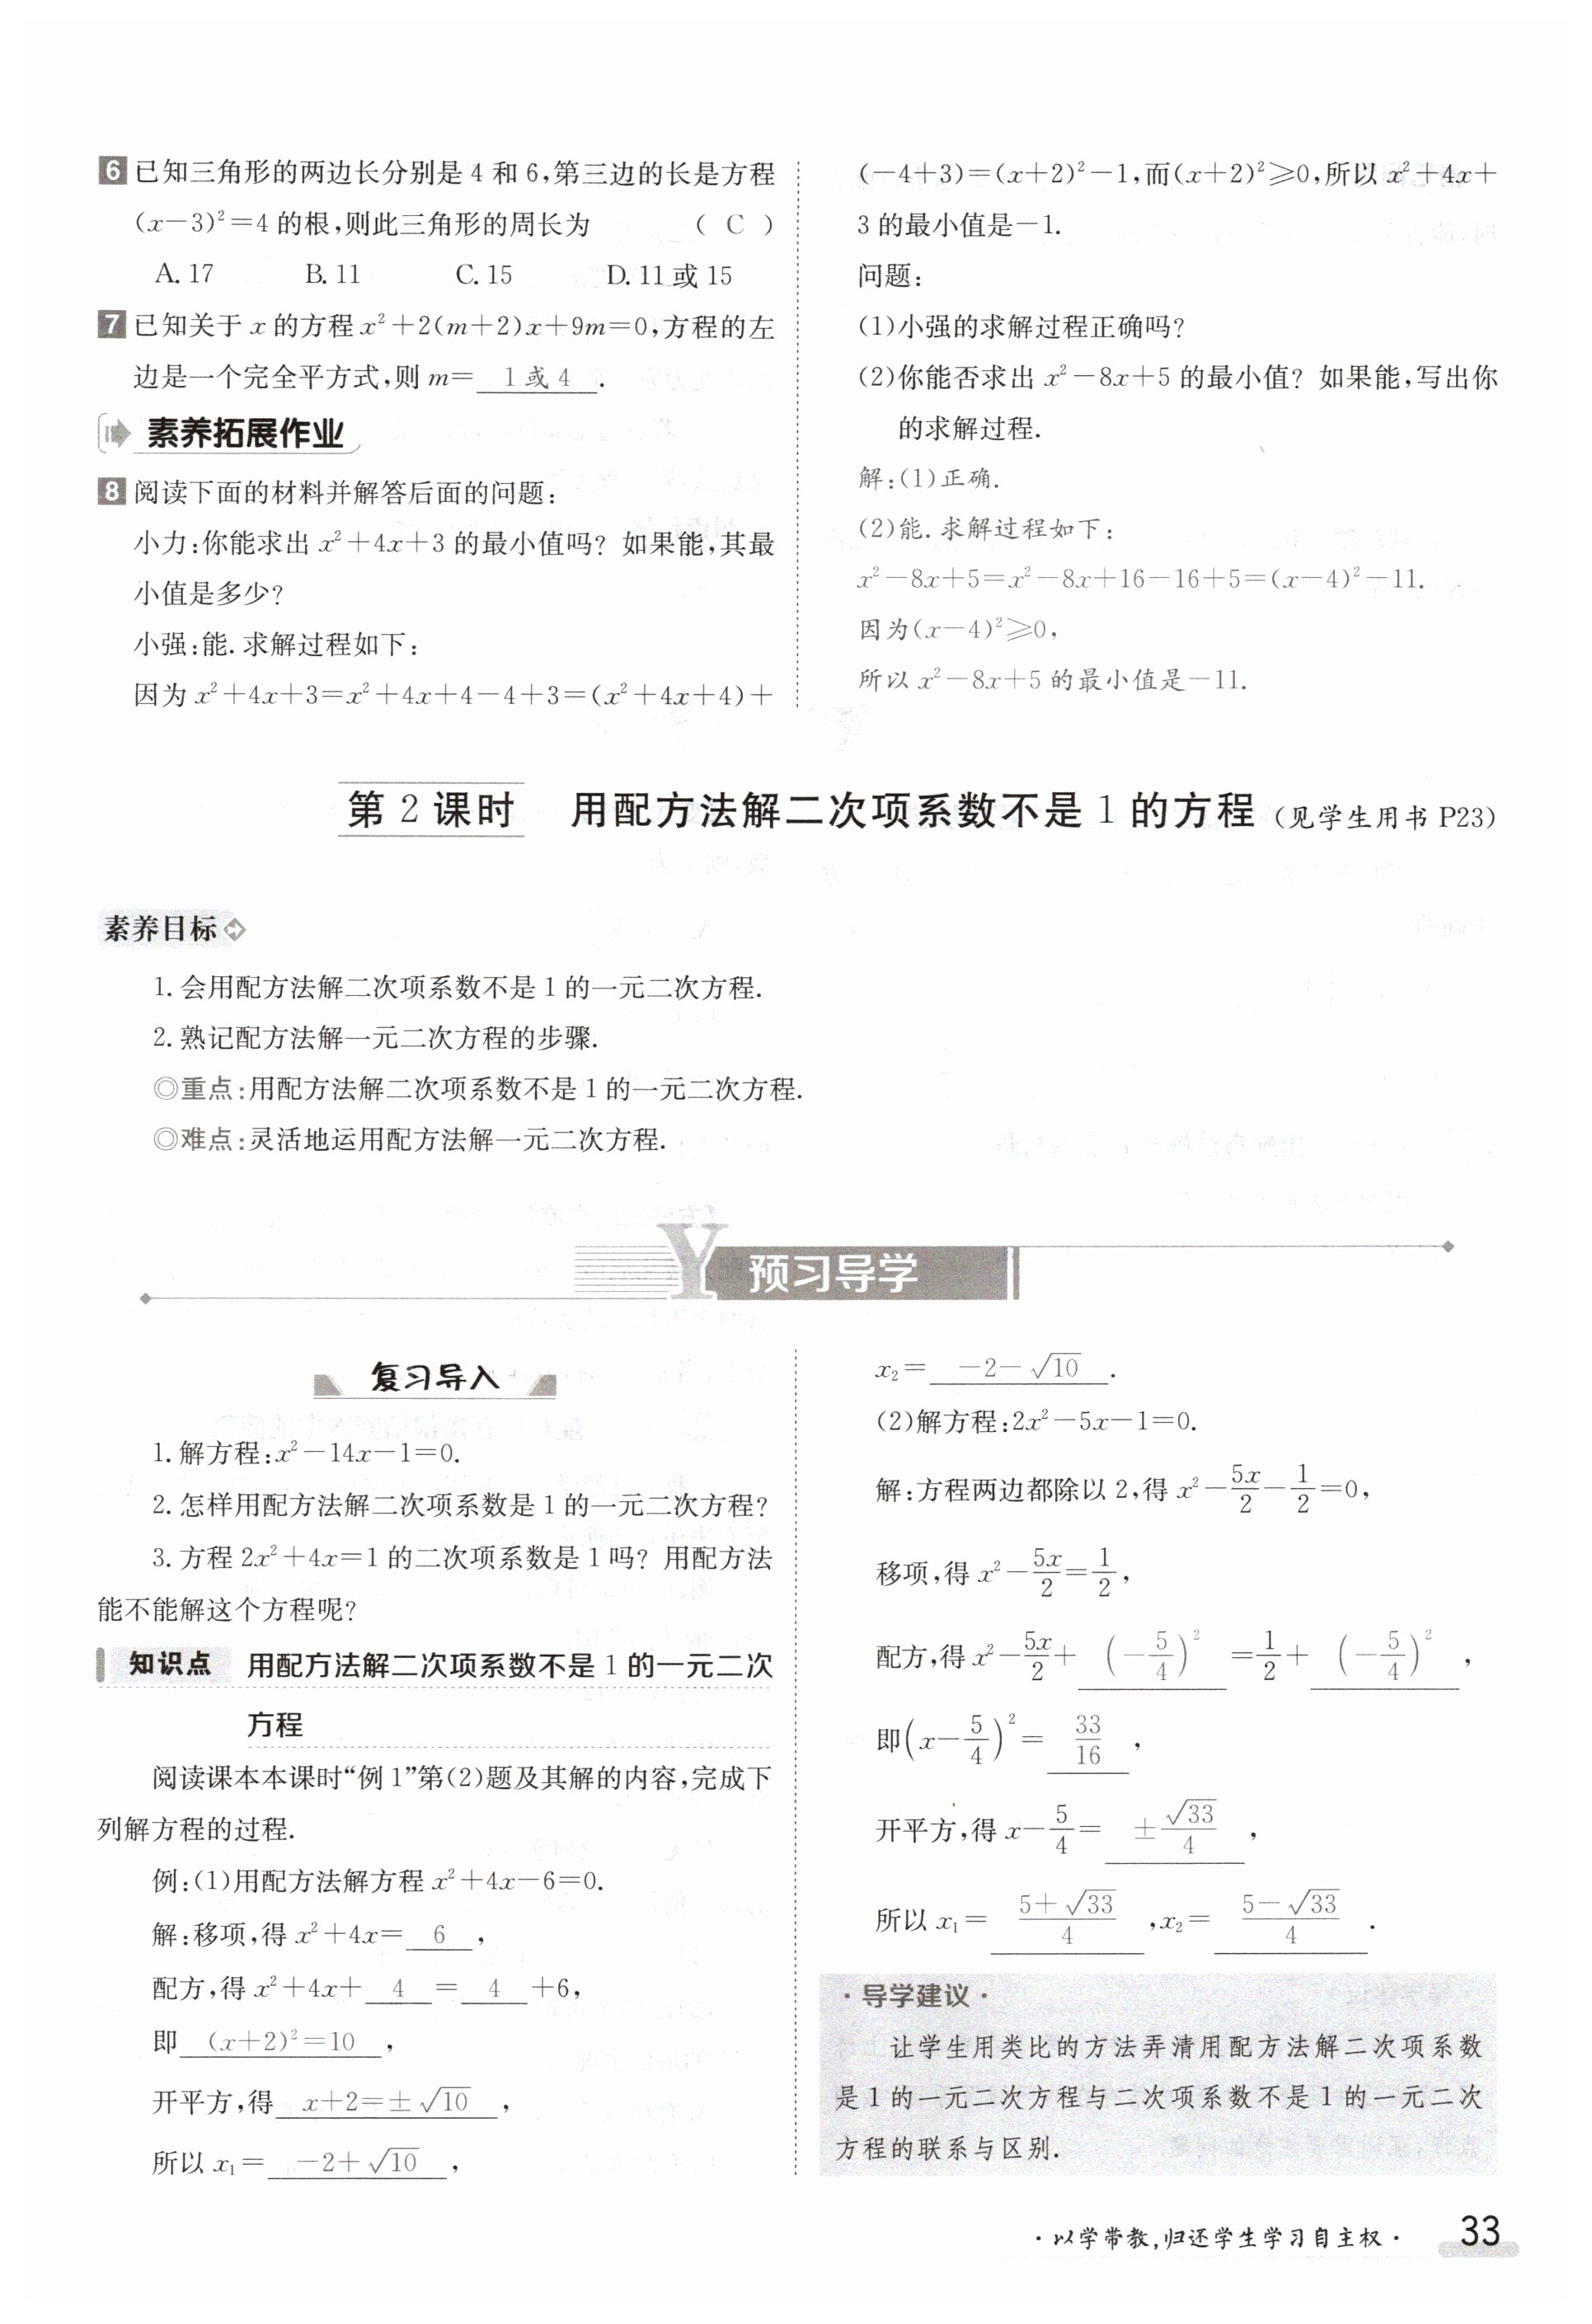 6 已知三角形的两边长分别是 4 和 6,第三边的长是方程
(x−3)²=4 的根,则此三角形的周长为 ( C )
A. 17 B. 11 C. 15 D. 11 或 15
7 已知关于 x 的方程 x²+2(m+2)x+9m=0,方程的左
边是一个完全平方式,则 m= 1 或 4 .
素养拓展作业
8 阅读下面的材料并解答后面的问题:
小力:你能求出 x²+4x+3 的最小值吗? 如果能,其最
小值是多少?
小强:能. 求解过程如下:
因为 x²+4x+3=x²+4x+4−4+3=(x²+4x+4)+
(−4+3)=(x+2)²−1,而(x+2)²≥0,所以 x²+4x+
3 的最小值是−1.
问题:
(1)小强的求解过程正确吗?
(2)你能否求出 x²−8x+5 的最小值? 如果能,写出你
的求解过程.
解:(1)正确.
(2)能. 求解过程如下:
x²−8x+5=x²−8x+16−16+5=(x−4)²−11.
因为(x−4)²≥0,
所以 x²−8x+5 的最小值是−11.
第 2 课时 用配方法解二次项系数不是 1 的方程 (见学生用书 P23)
素养目标
1. 会用配方法解二次项系数不是 1 的一元二次方程.
2. 熟记配方法解一元二次方程的步骤.
◎重点:用配方法解二次项系数不是 1 的一元二次方程.
◎难点:灵活地运用配方法解一元二次方程.
Y 预习导学
复习导入
1. 解方程:x²−14x−1=0.
2. 怎样用配方法解二次项系数是 1 的一元二次方程?
3. 方程 2x²+4x=1 的二次项系数是 1 吗? 用配方法
能不能解这个方程呢?
知识点 用配方法解二次项系数不是 1 的一元二次
方程
阅读课本本课时“例 1”第(2)题及其解的内容,完成下
列解方程的过程.
例:(1)用配方法解方程 x²+4x−6=0.
解:移项,得 x²+4x= 6 ,
配方,得 x²+4x+ 4 = 4 +6,
即 (x+2)²=10 ,
开平方,得 x+2=±√10 ,
所以 x₁= −2+√10 ,
x₂= −2−√10 .
(2)解方程:2x²−5x−1=0.
解:方程两边都除以 2,得 x²−5x/2−1/2=0,
移项,得 x²−5x/2=1/2,
配方,得 x²−5x/2+ (−5/4)² =1/2+ (−5/4)² ,
即(x−5/4)²= 33/16 ,
开平方,得 x−5/4= ±√33/4 ,
所以 x₁= (5+√33)/4 ,x₂= (5−√33)/4 .
·导学建议·
让学生用类比的方法弄清用配方法解二次项系数
是 1 的一元二次方程与二次项系数不是 1 的一元二次
方程的联系与区别.
·以学带教,归还学生学习自主权· 33